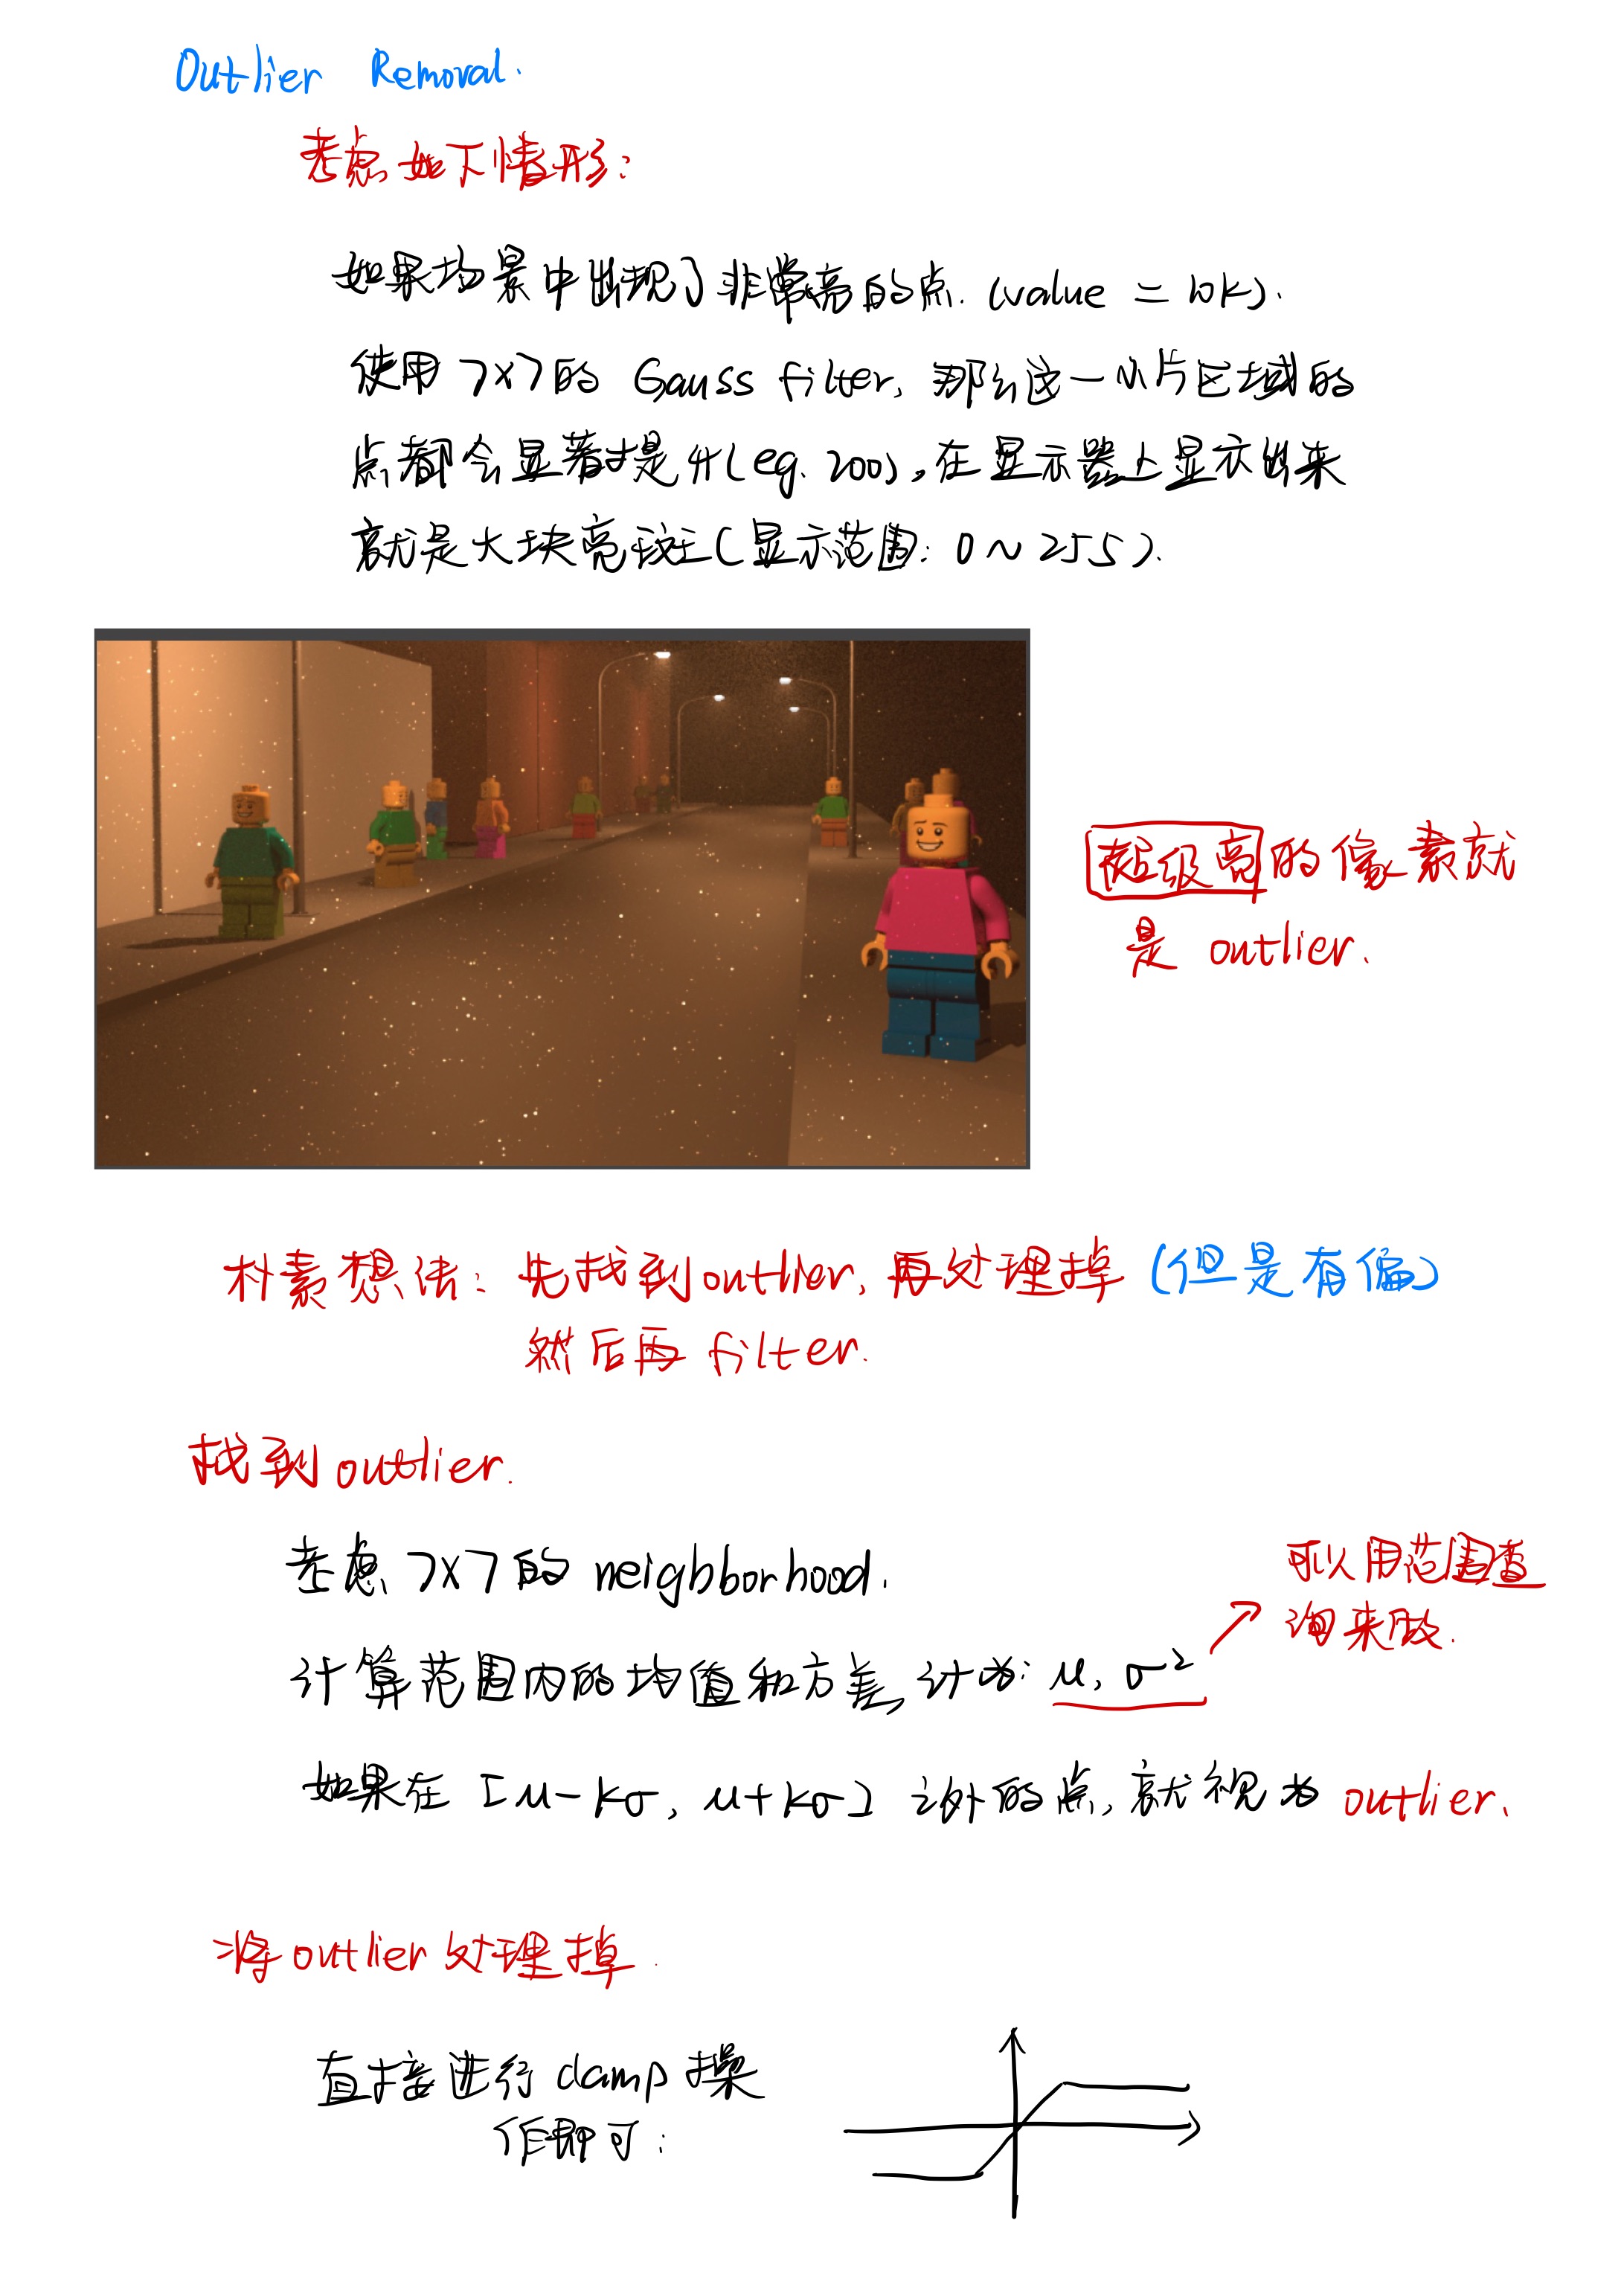 Outlier Removal.
考虑如下情形：
如果场景中出现了非常亮的点. (value = 10k).
使用 7×7 的 Gauss filter, 那么这一小片区域的
点都会显著提升(eg. 200), 在显示器上显示出来
就是大块亮斑(显示范围: 0 ~ 255).
超级亮的像素就
是 outlier.
朴素想法： 先找到outlier, 再处理掉 (但是有偏)
然后再 filter.
找到outlier.
考虑 7×7 的 neighborhood.
可以用范围查
询来做.
计算范围内的均值和方差, 计为: μ, σ²
如果在 [μ-kσ, μ+kσ] 之外的点, 就视为 outlier.
将outlier处理掉.
直接进行 clamp 操
作即可: